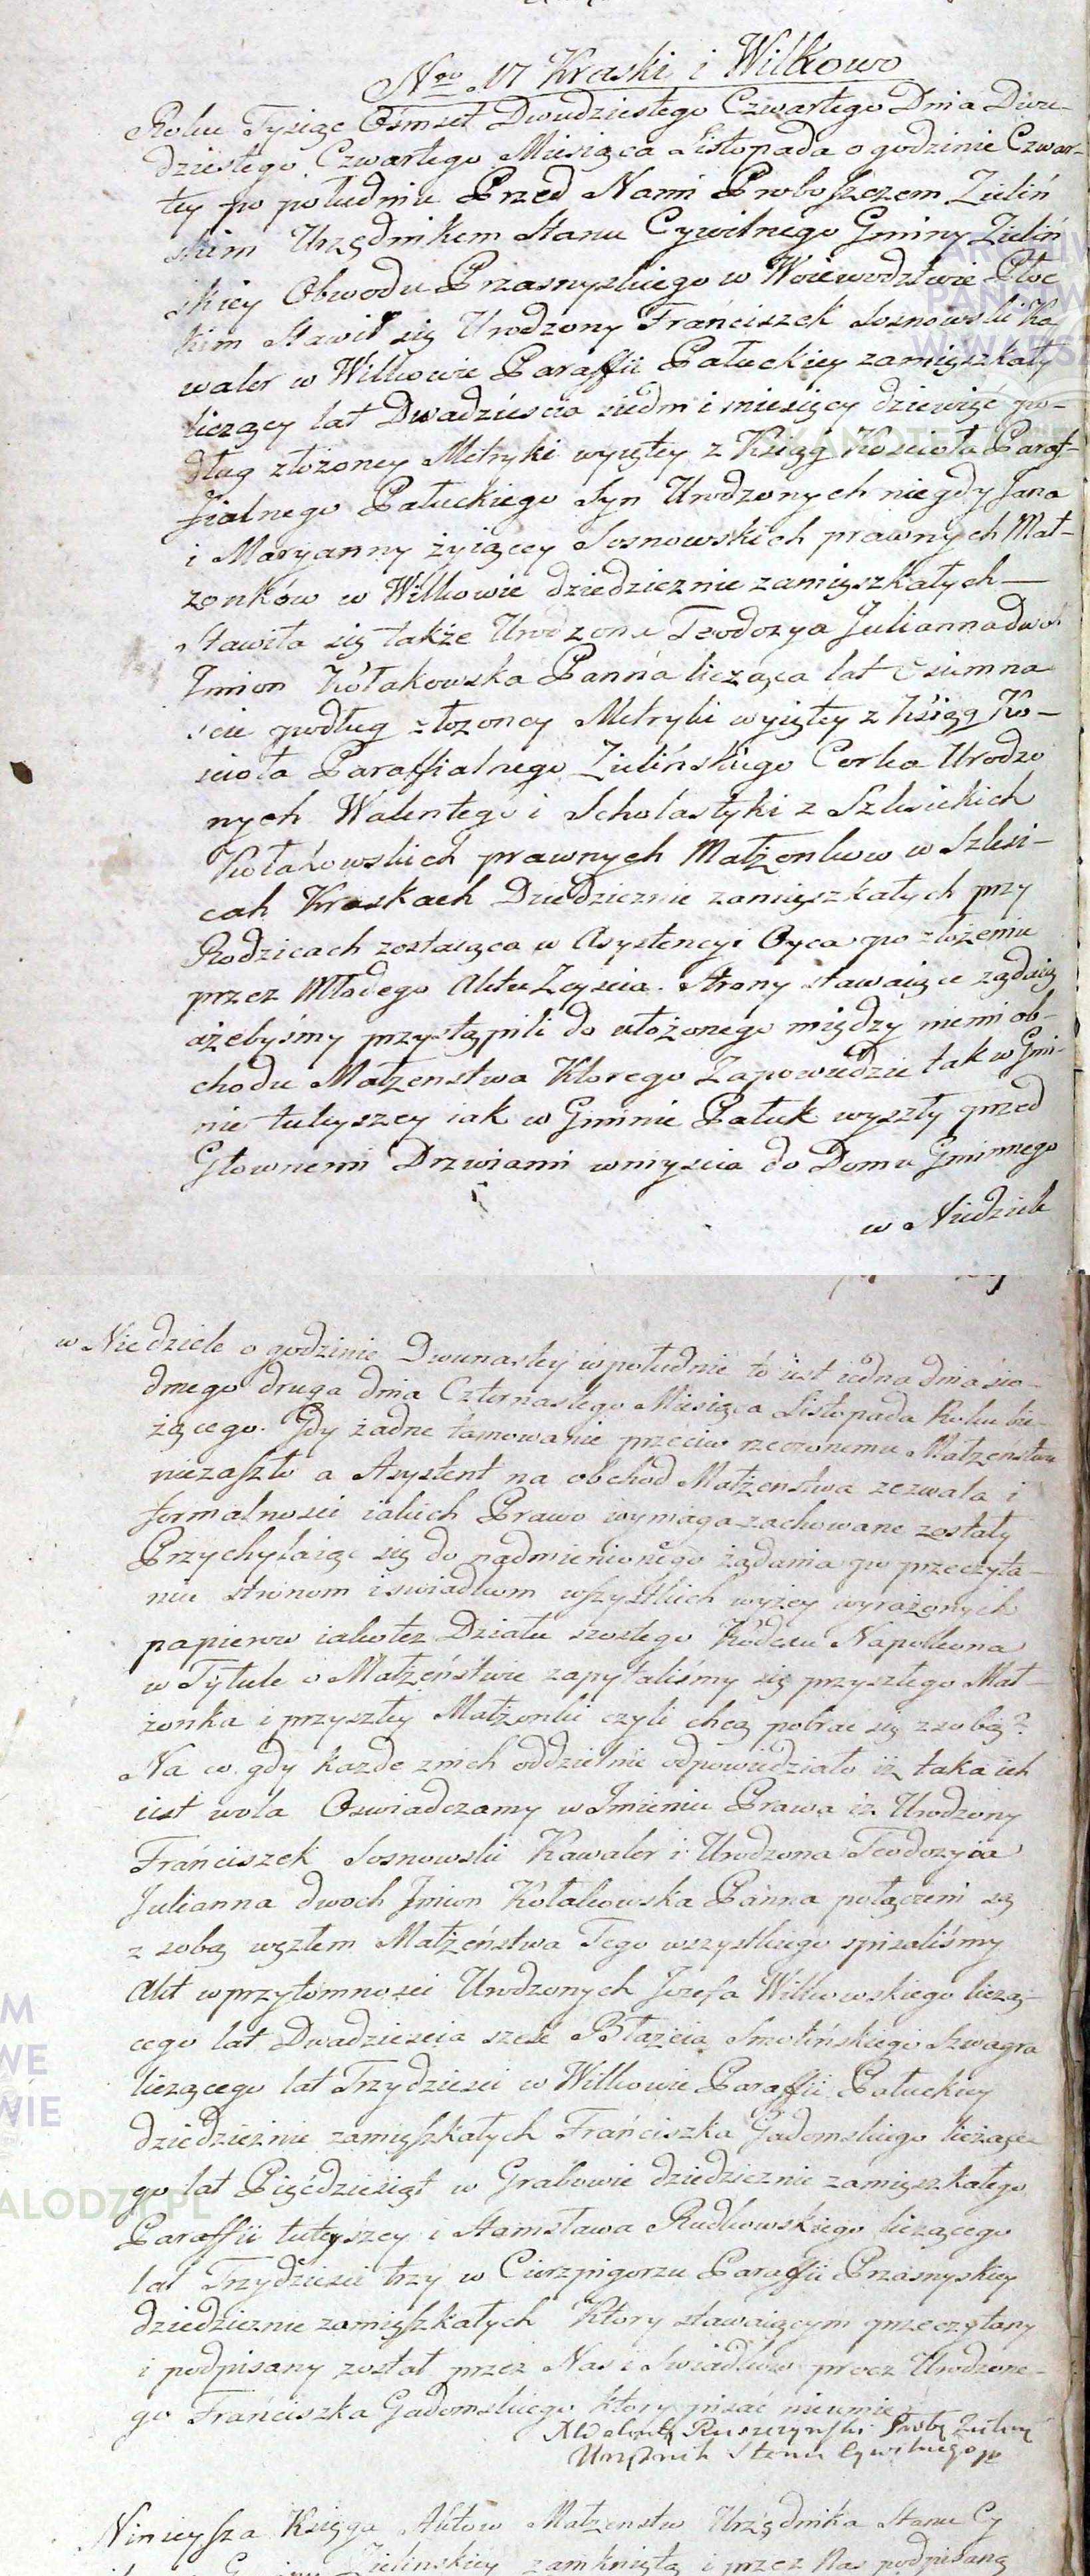 Nro 17 Kraski i Wilkowo
Roku Tysiąc Ośmset Dwudziestego Czwartego Dnia Dwu-
dziestego Czwartego Miesiąca Listopada o godzinie Czwar-
tey po południu Przed Nami Proboszczem Zieliń
skim Urzędnikem Stanu Cywilnego Gminy Zieliń
skiey Obwodu Przasnyskiego w Woiewodztwie Płoc
kim Stawił się Urodzony Franciszek Sosnowski Ka
waler w Wilkowie Paraffii Pałuckiey zamięszkały
liczący lat Dwadzieścia siedm i miesięcy dziewięć po-
dług złożoney Metryki wyiętey z Ksiąg Kościoła Paraf-
fialnego Pałuckiego Syn Urodzonych niegdy Jana
i Maryanny żyiącey Sosnowskich prawnych Mał-
zonków w Wilkowie dziedzicznie zamięszkałych
Stawiła się także Urodzona Teodozya Julianna dwoch
Imion Kółakowska Panna licząca lat Osiemna
scie podług złozoney Metryki wyiętey z Ksiąg Ko-
scioła Paraffialnego Zielińskiego Corka Urodzo
nych Walentego i Scholastyki z Szlasickich
Kołakowskich prawnych Małżonkow w Szlasi-
cah Kraskach Dziedzicznie zamięszkałych przy
Rodzicach zostaiąca w Asystencyi Oyca po złożeniu
przez Młodego Aktu Zeyscia. Strony stawaiące żądaią
ażebyśmy przystąpili do ułożonego między niemi ob-
chodu Małżenstwa Ktorego Zapowiedzie tak w Gmi-
nie tuteyszey iak w Gminie Pałuk wyszły przed
Głownemi Drzwiami wniyscia do Domu Gminnego
w Niedziele
w Niedziele o godzinie Dwunastey w południe to iest iedna dnia sio-
dmego druga dnia Czternastego Miesiąca Listopada Roku bie-
żącego. Gdy żadne tamowanie przeciw rzeczonemu Małżeństwu
niezaszło a Asystent na obchod Małżenstwa zezwala i
formalnosci iakich Prawo wymaga zachowane zostały
Przychylaiąc się do nadmienionego żądania po przeczyta-
niu stronom i swiadkom wszystkich wyżey wyrażonych
papierow iakotez Działu szostego Kodexu Napoleona
w Tytule o Małżeństwie zapytaliśmy się przyszłego Mał-
żonka i przyszłey Małżonki czyli chcą pobrać się z sobą?
Na co gdy każde z nich oddzielnie odpowiedziało iż taka ich
iest wola Oswiadczamy w Imieniu Prawa iż Urodzony
Franciszek Sosnowski Kawaler i Urodzona Teodozyia
Julianna dwoch Imion Kołakowska Panna połączeni są
z sobą węzłem Małżeństwa Tego wszystkiego spisaliśmy
Akt w przytomnosci Urodzonych Jozefa Wilkowskiego liczą-
cego lat Dwadziescia szesc Błażeia Smolińskiego Szwagra
liczącego lat Trzydziesci w Wilkowie Paraffii Pałuckiey
dziedzicznie zamięszkałych Franciszka Gadomskiego licząc-
go lat Pięćdziesiąt w Grabowie dziedzicznie zamięszkałego
Paraffii tuteyszey i Stanisława Rudkowskiego liczącego
lat Trzydziesci trzy w Cierzpigorzu Paraffii Przasnyskiey
dziedzicznie zamięszkałych Ktory stawaiącym przeczytany
i podpisany został przez Nas i Swiadkow procz Urodzone-
go Franciszka Gadomskiego ktory pisać nieumie
Ruszczyński Prob Zieliń
Urzędnik Stanu Cywilnego
Ninieysza Księga Aktow Małzenstw Urzędnika Stanu Cy
Zielinskiey zamknięta i przez Nas podpisaną